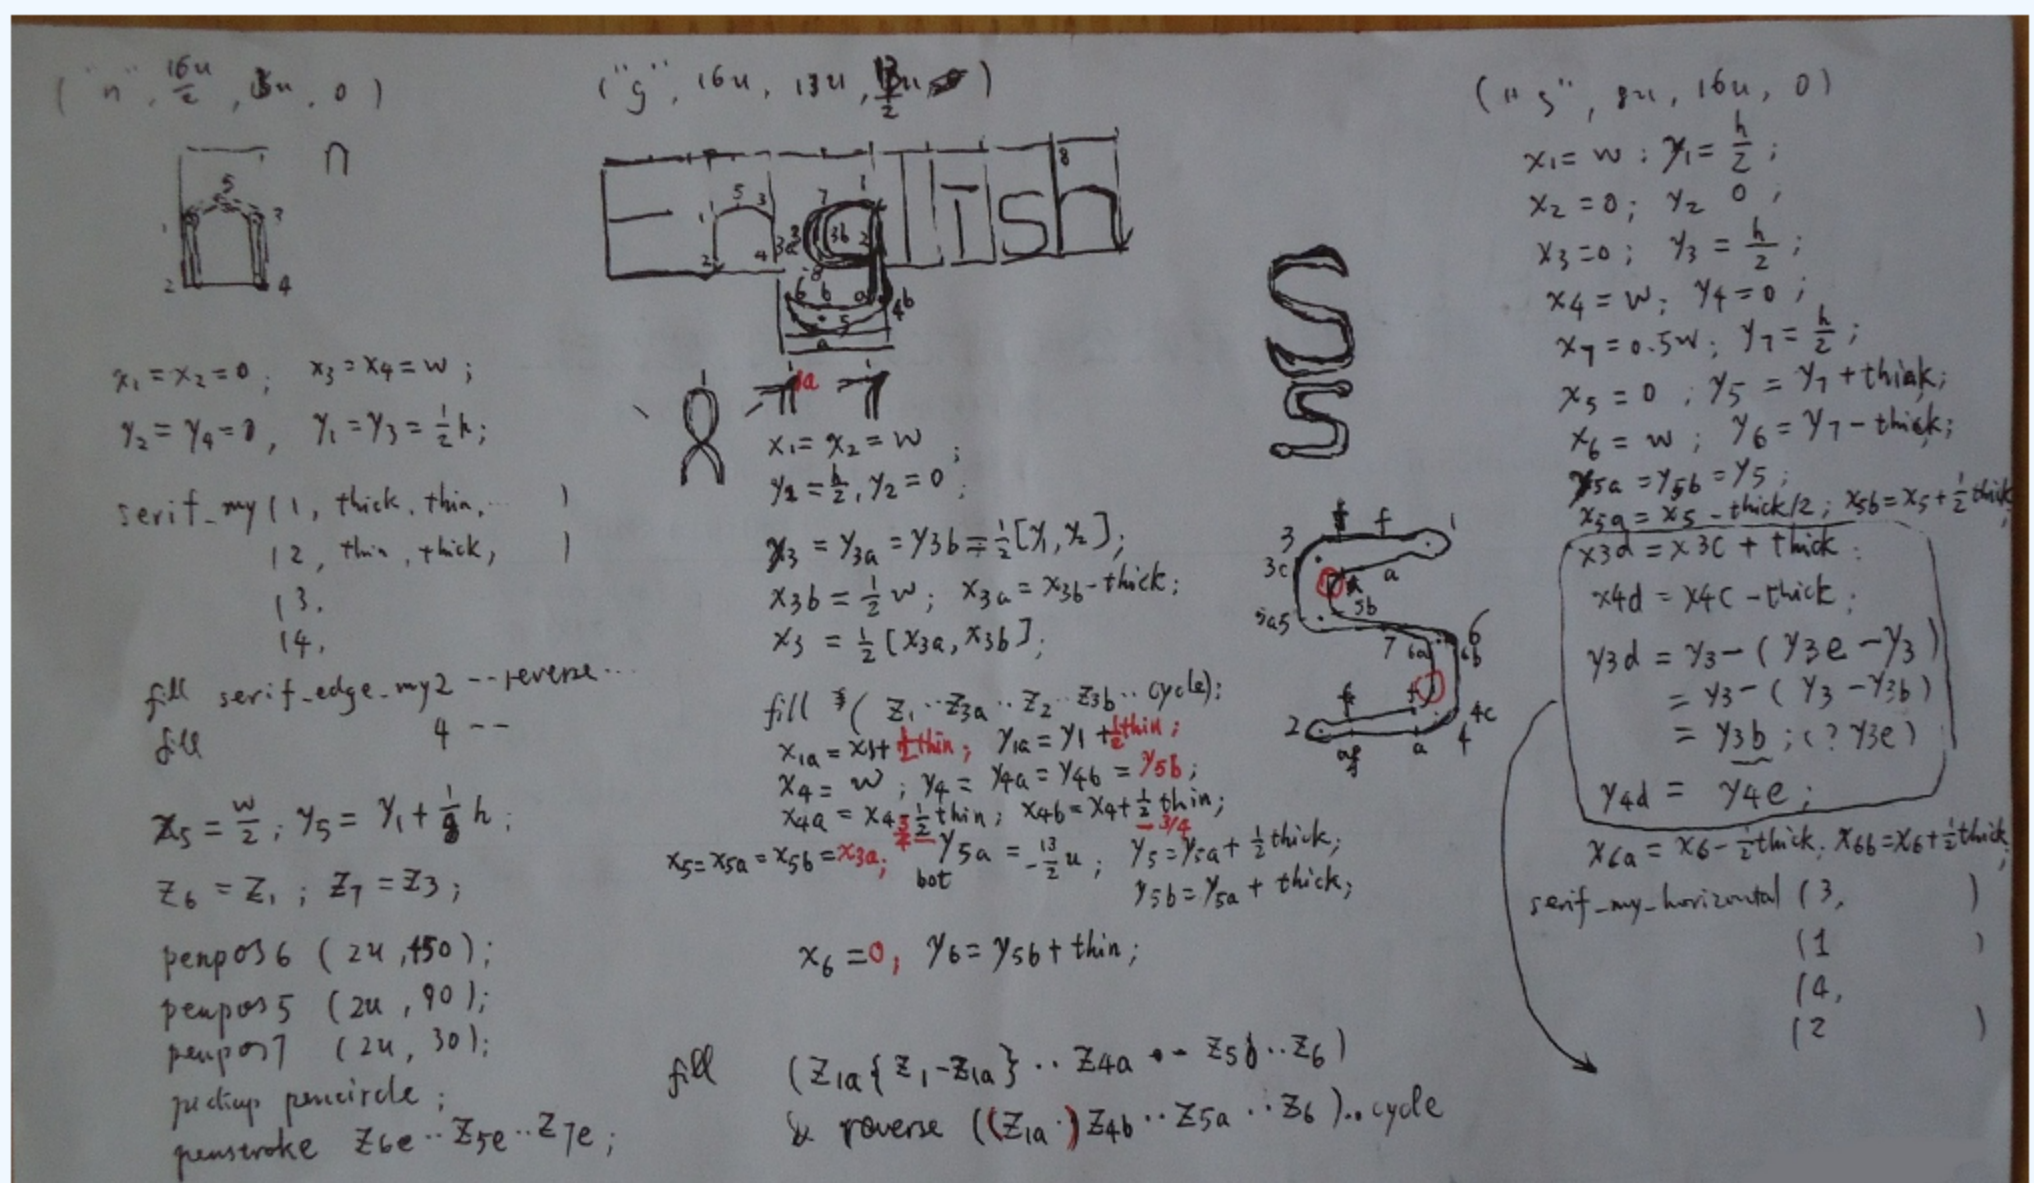 ("n", 16u/2, , 0)
5
1 3
2 4
n
x1 = x2 = 0; x3 = x4 = w;
y2 = y4 = 0, y1 = y3 = 1/2 h;
serif_my (1, thick, thin, ... )
(2, thin, thick, )
(3,
(4,
fill serif_edge_my2 -- reverse ...
fill 4 --
x5 = w/2; y5 = y1 + 1/8 h;
z6 = z1; z7 = z3;
penpos6 (2u, 150);
penpos5 (2u, 90);
penpos7 (2u, 30);
pickup pencircle;
penstroke z6e..z5e..z7e;
("g", 16u, 13u, 13/2 u)
8
5 3 7 1
1 3b 2
2 4 3a
6 b a 4b
5
a
1a
x1 = x2 = w ;
y1 = h/2, y2 = 0 ;
y3 = y3a = y3b = 1/2[y1, y2];
x3b = 1/2 w; x3a = x3b - thick;
x3 = 1/2 [x3a, x3b];
fill (z1..z3a..z2..z3b..cycle);
x1a = x1 + 1/2 thin; y1a = y1 + 1/2 thin;
x4 = w; y4 = y4a = y4b = y5b;
x4a = x4 - 1/2 thin; x4b = x4 + 1/2 thin;
- 3/4
x5 = x5a = x5b = x3a; y5a = -13/2 u; y5 = y5a + 1/2 thick;
bot y5b = y5a + thick;
x6 = 0; y6 = y5b + thin;
fill (z1a{z1-z1a}..z4a -- z5b..z6)
& reverse ((z1a.)z4b..z5a..z6)..cycle
S
S
3 f 1
3c a
5b
5a5
7 6a 6 6b
2 4c
a 4
("s", 8u, 16u, 0)
x1 = w; y1 = h/2;
x2 = 0; y2 0;
x3 = 0; y3 = h/2;
x4 = w; y4 = 0;
x7 = 0.5w; y7 = h/2;
x5 = 0; y5 = y7 + thick;
x6 = w; y6 = y7 - thick;
y5a = y5b = y5;
x5a = x5 - thick/2; x5b = x5 + 1/2 thick;
x3d = x3c + thick;
x4d = x4c - thick;
y3d = y3 - (y3e - y3)
= y3 - (y3 - y3b)
= y3b; (? y3e)
y4d = y4e;
x6a = x6 - 1/2 thick; x6b = x6 + 1/2 thick;
serif_my_horizontal (3, )
(1 )
(4,
(2 )